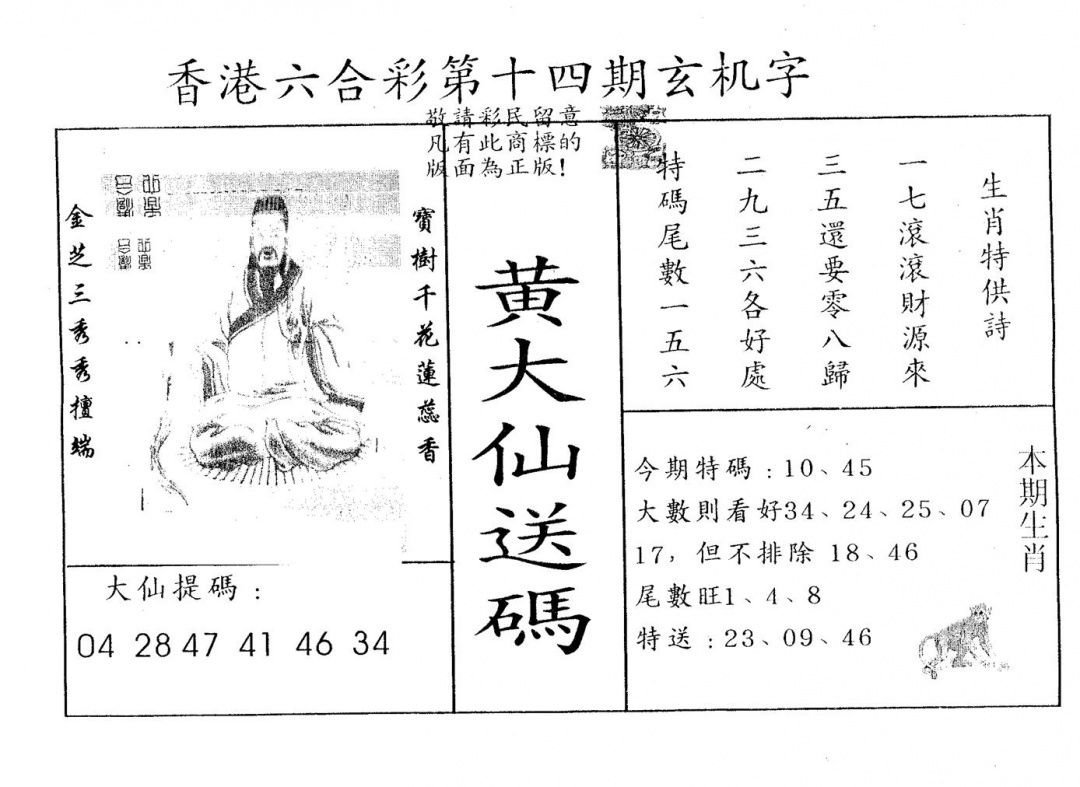 香港六合彩第十四期玄机字
敬請彩民留意
凡有此商標的
版面為正版！
寶樹千花蓮蕊香
金芝三秀秀檀端
大仙提碼：
04 28 47 41 46 34
黃大仙送碼
生肖特供詩
一七滾滾財源來
三五還要零八歸
二九三六各好處
特碼尾數一五六
本期生肖
今期特碼：10、45
大數則看好34、24、25、07
17，但不排除 18、46
尾數旺1、4、8
特送：23、09、46